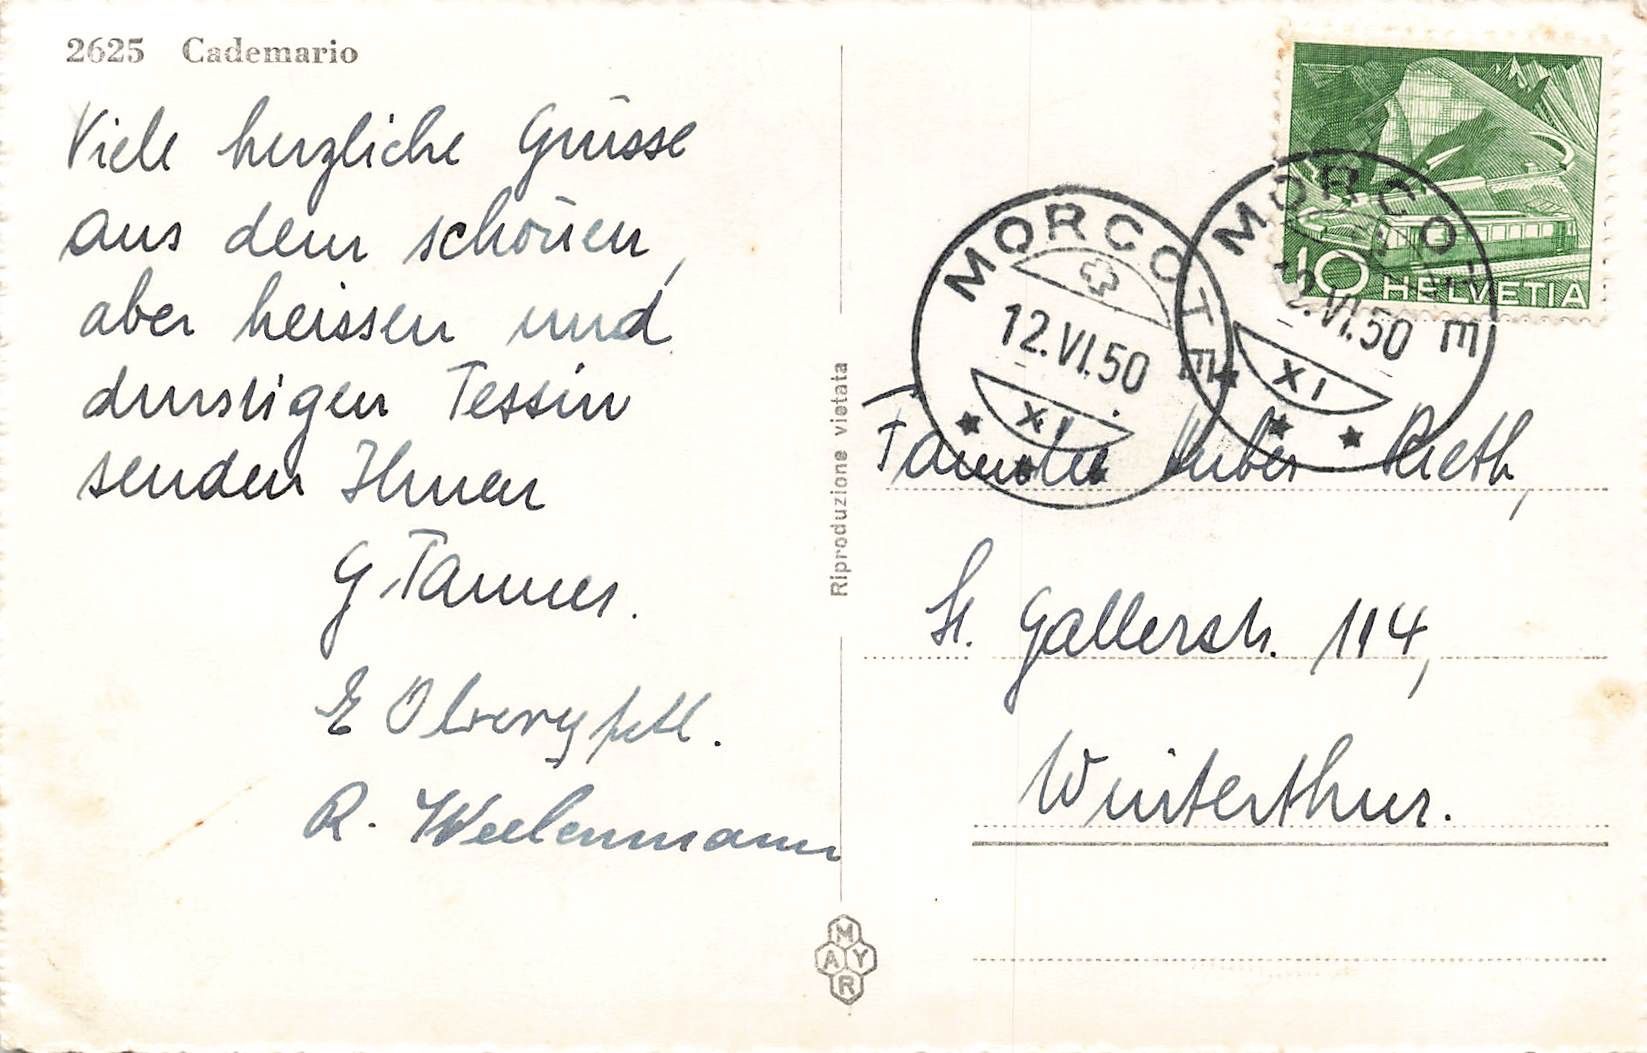 2625 Cademario
Viele herzliche Grüsse
aus dem schönen,
aber heissen und
dunstigen Tessin
senden Ihnen
G Tanner.
E
R. Weilenmann
Riproduzione vietata
MAYR
10 HELVETIA
MORCOTE
12.VI.50
XI
MORCOTE
12.VI.50
XI
Familie Huber Rieth,
St. Gallerstr. 114,
Winterthur.